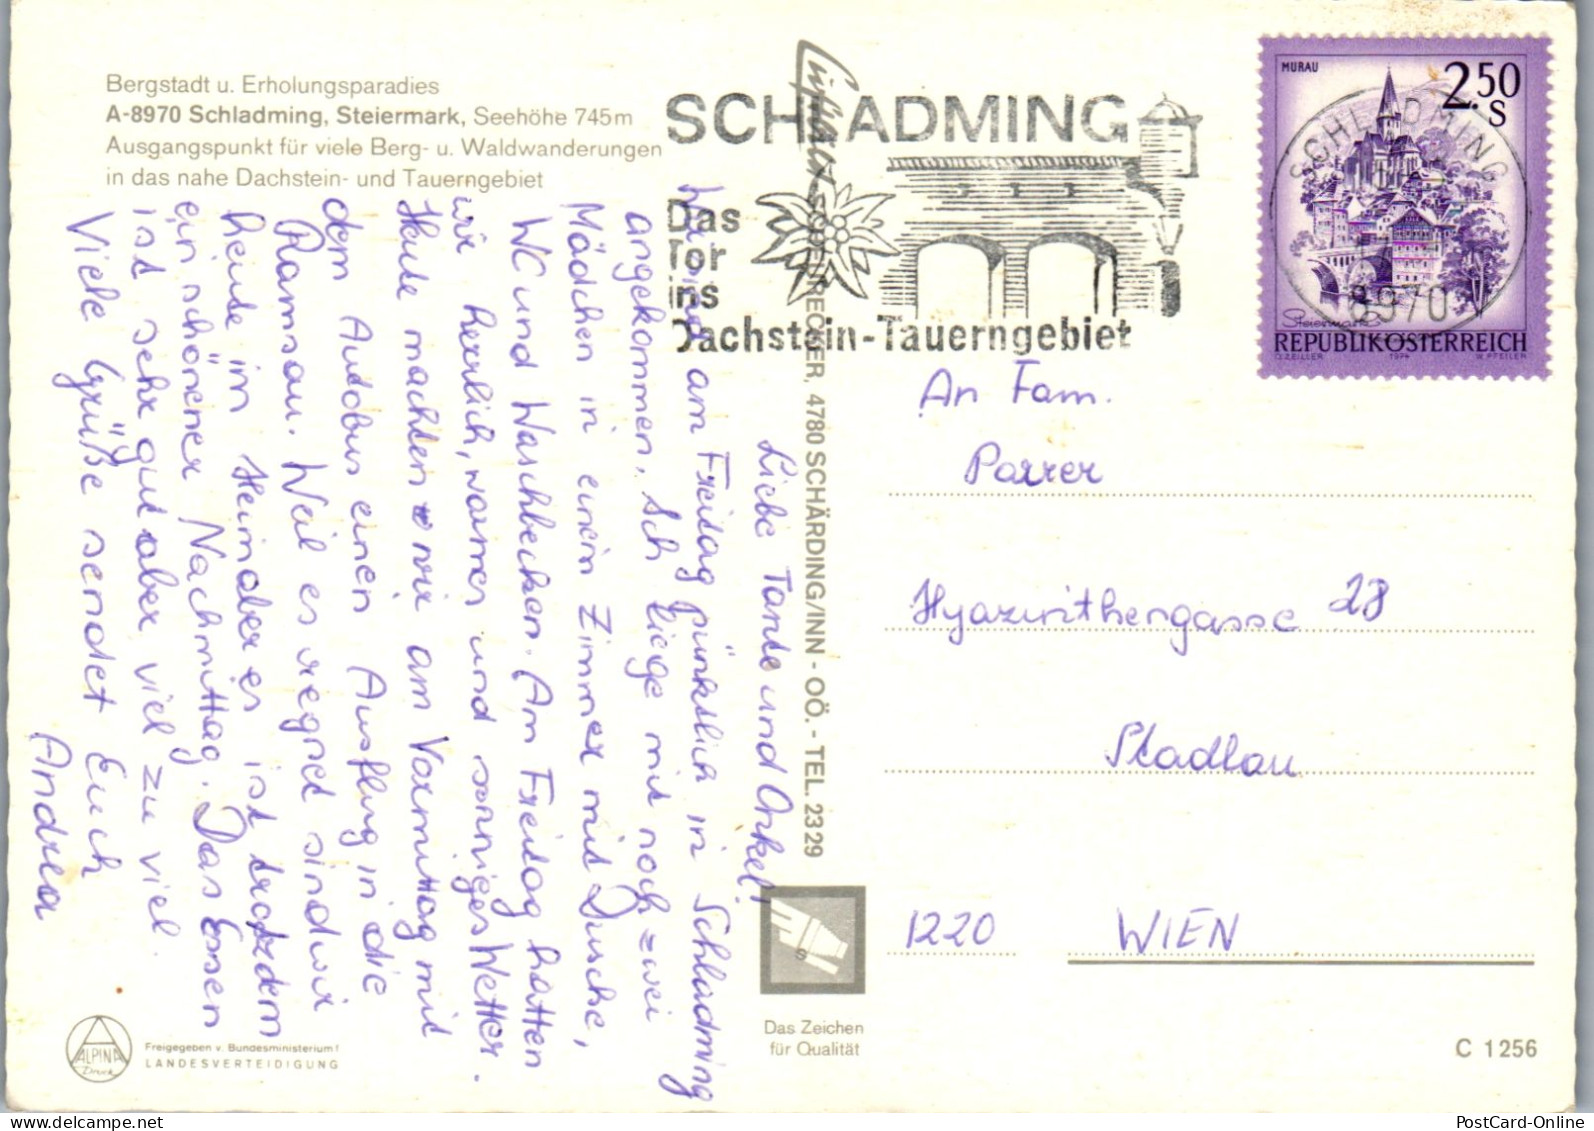 Bergstadt u. Erholungsparadies
A-8970 Schladming, Steiermark, Seehöhe 745m
Ausgangspunkt für viele Berg- u. Waldwanderungen
in das nahe Dachstein- und Tauerngebiet
SCHLADMING
Das
Tor
ins
Dachstein-Tauerngebiet
MURAU
2.50
S
SCHLADMING
8970
Steiermark
REPUBLIK ÖSTERREICH
O. ZEILLER 1974 W. PFEILER
Liebe Tante und Onkel!
Wir sind am Freitag pünktlich in Schladming
angekommen. Ich liege mit noch zwei
Mädchen in einem Zimmer mit Dusche,
WC und Waschbecken. Am Freitag hatten
wir herrlich, warmes und sonniges Wetter.
Heute machten wir am Vormittag mit
dem Autobus einen Ausflug in die
Ramsau. Weil es regnet sind wir
heute im Heim aber es ist trotzdem
ein schöner Nachmittag. Das Essen
ist sehr gut aber viel zu viel.
Viele Grüße sendet Euch
Andrea
SCHÖNRECKER, 4780 SCHÄRDING/INN - OÖ. - TEL. 2329
An Fam.
Parrer
Hyazinthengasse 28
Stadlau
1220 WIEN
Das Zeichen
für Qualität
ALPINA
Druck
Freigegeben v. Bundesministerium f
LANDESVERTEIDIGUNG
C 1256
PostCard-Online.com